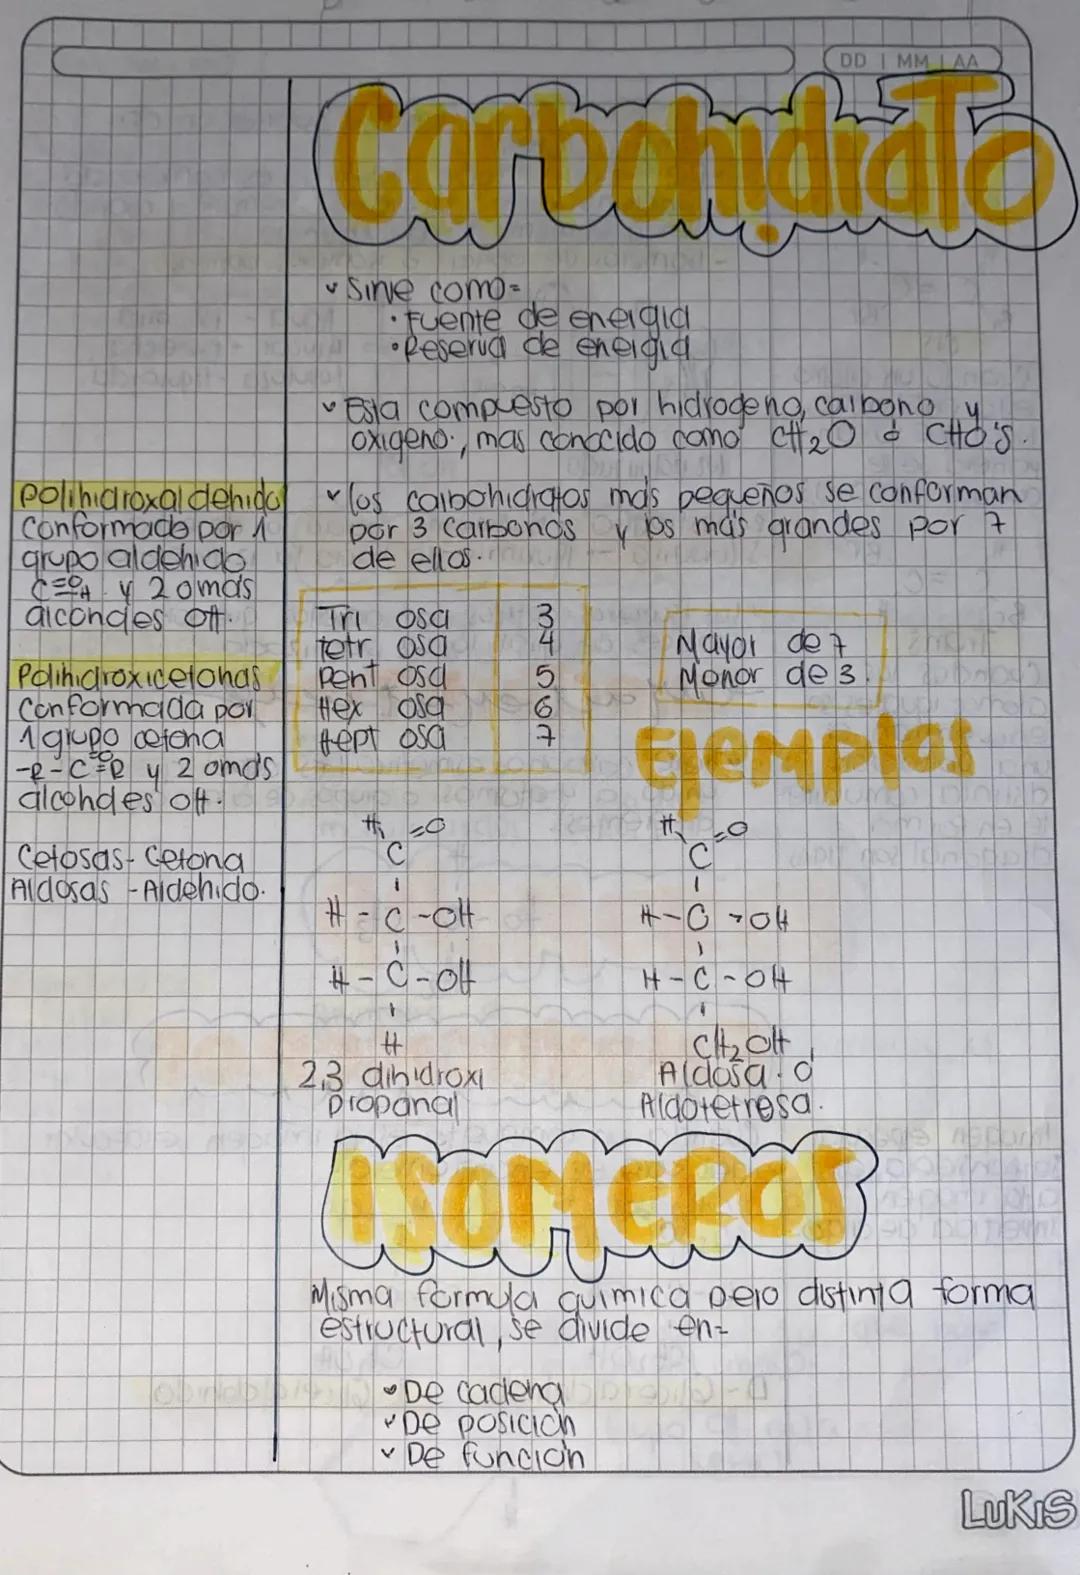 DD | MM | AA
Carbohidrato
Sirve como=
• Fuente de energia
• Reserva de energia
Esta compuesto por hidrogeno, carbono y
oxigeno., mas conocido como CH₂O ó CHO's.
los carbohidratos más pequeños se conforman
por 3 Carbonos y los más grandes por 7
de ellos.
Polihidroxaldehido
Conformado por 1
grupo aldehido
C=O H y 2 o más
alcoholes OH.
Polihidroxicetonas
Conformada por
1 grupo cetona
-R-C=O R y 2 o más
alcoholes OH.
Cetosas - Cetona
Aldosas - Aldehido.
Tri osa 3
tetr osa 4
Pent osa 5
Hex osa 6
Hept osa 7
Mayor de 7
Menor de 3.
Ejemplos
H =O
C
H - C - OH
H - C - OH
H
2,3 dihidroxi
Propanal
H =O
C
H - C - OH
H - C - OH
CH₂OH
Aldosa. o
Aldotetrosa.
ISOMEROS
Misma formula quimica pero distinta forma
estructural, se divide en=
De cadena
De posición
De función
LUKIS